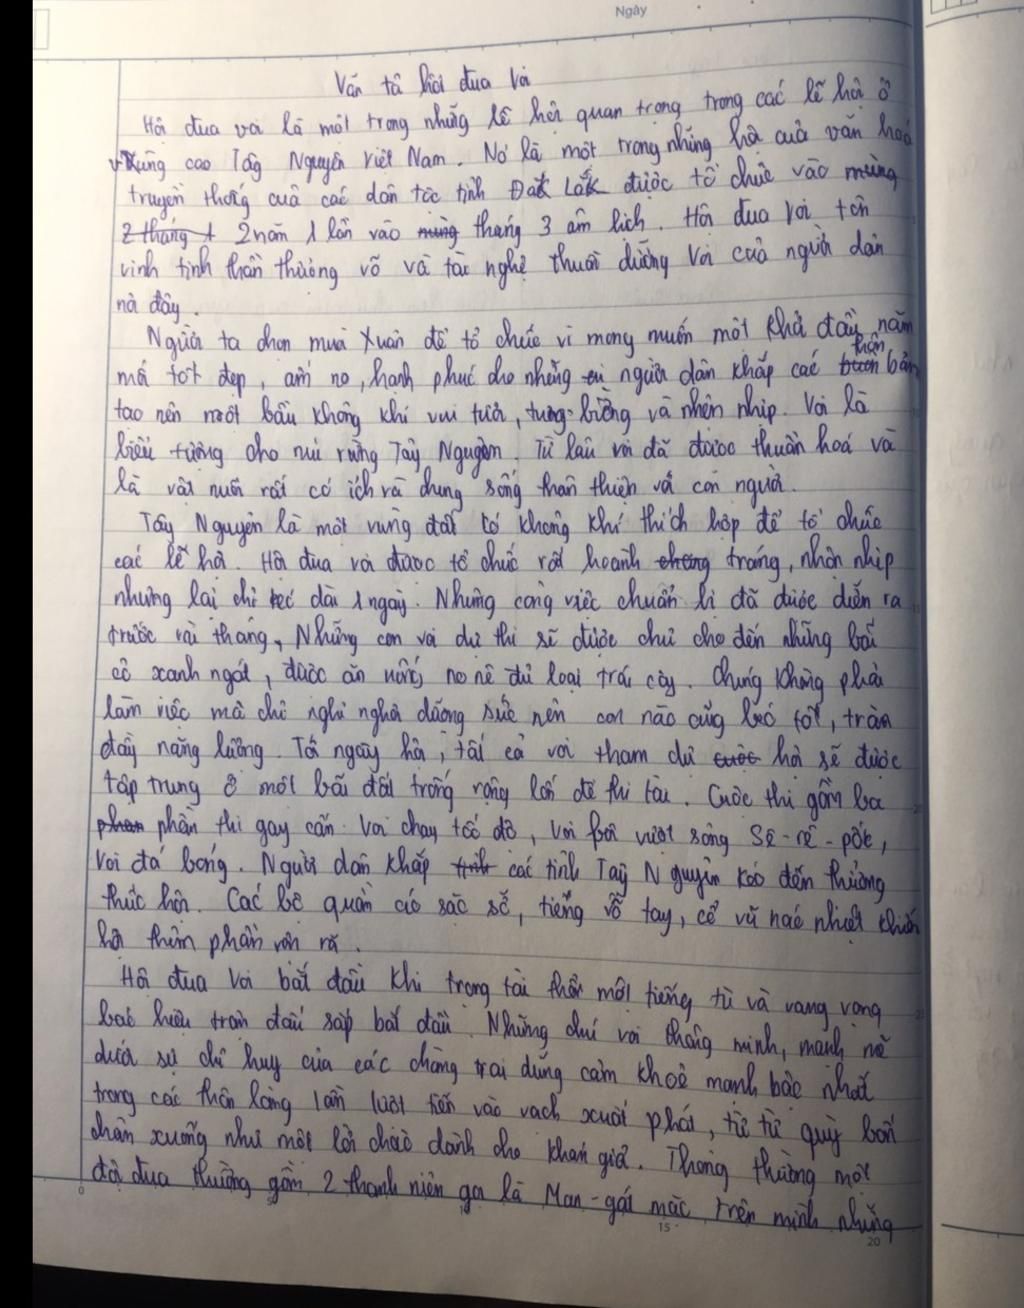 Ngày
Văn tả hội đua voi
Hội đua voi là một trong những lễ hội quan trọng trong các lễ hội ở
vùng cao Tây Nguyên Việt Nam. Nó là một trong những hội của văn hoá
truyền thống của các dân tộc tỉnh Đắk Lắk được tổ chức vào mùng
2 tháng 1 2 năm 1 lần vào mùng tháng 3 âm lịch. Hội đua voi tôn
vinh tinh thần thượng võ và tài nghệ thuần dưỡng voi của người dân
nơi đây.
Người ta chọn mùa xuân để tổ chức vì mong muốn một khởi đầu năm
mới tốt đẹp, ấm no, hạnh phúc cho những người dân khắp các buôn thôn bản
tạo nên một bầu không khí vui tươi, tưng bừng và nhộn nhịp. Voi là
biểu tượng cho núi rừng Tây Nguyên. Từ lâu voi đã được thuần hoá và
là vật nuôi rất có ích và chung sống thân thiện với con người.
Tây Nguyên là một vùng đất có không khí thích hợp để tổ chức
các lễ hội. Hội đua voi được tổ chức rất hoành tráng, nhộn nhịp
nhưng lại chỉ kéo dài 1 ngày. Những công việc chuẩn bị đã được diễn ra
trước vài tháng, Những con voi dự thi sẽ được chủ cho đến những bãi
cỏ xanh ngát, được ăn uống no nê đủ loại trái cây. Chúng không phải
làm việc mà chỉ nghỉ ngơi dưỡng sức nên con nào cũng béo tốt, tràn
đầy năng lượng. Tới ngày hội, tất cả voi tham dự cuộc hội sẽ được
tập trung ở một bãi đất trống rộng lớn để thi tài. Cuộc thi gồm ba
phần phần thi gay cấn. Voi chạy tốc độ, voi bơi vượt sông Sê-rê-pốk,
voi đá bóng. Người dân khắp tỉnh các tỉnh Tây Nguyên kéo đến thưởng
thức hội. Các bộ quần áo sặc sỡ, tiếng vỗ tay, cổ vũ náo nhiệt khiến
hội thêm phần rôn rã.
Hội đua voi bắt đầu khi trọng tài thổi một tiếng tù và vang vọng
báo hiệu trận đấu sắp bắt đầu. Những chú voi thông minh, mạnh mẽ
dưới sự chỉ huy của các chàng trai dũng cảm khoẻ mạnh bậc nhất
trong các thôn làng lần lượt tiến vào vạch xuất phát, từ từ quỳ bốn
chân xuống như một lời chào dành cho khán giả. Thông thường một
đội đua thường gồm 2 thanh niên gọi là Man-gát mặc trên mình những
0
15
20